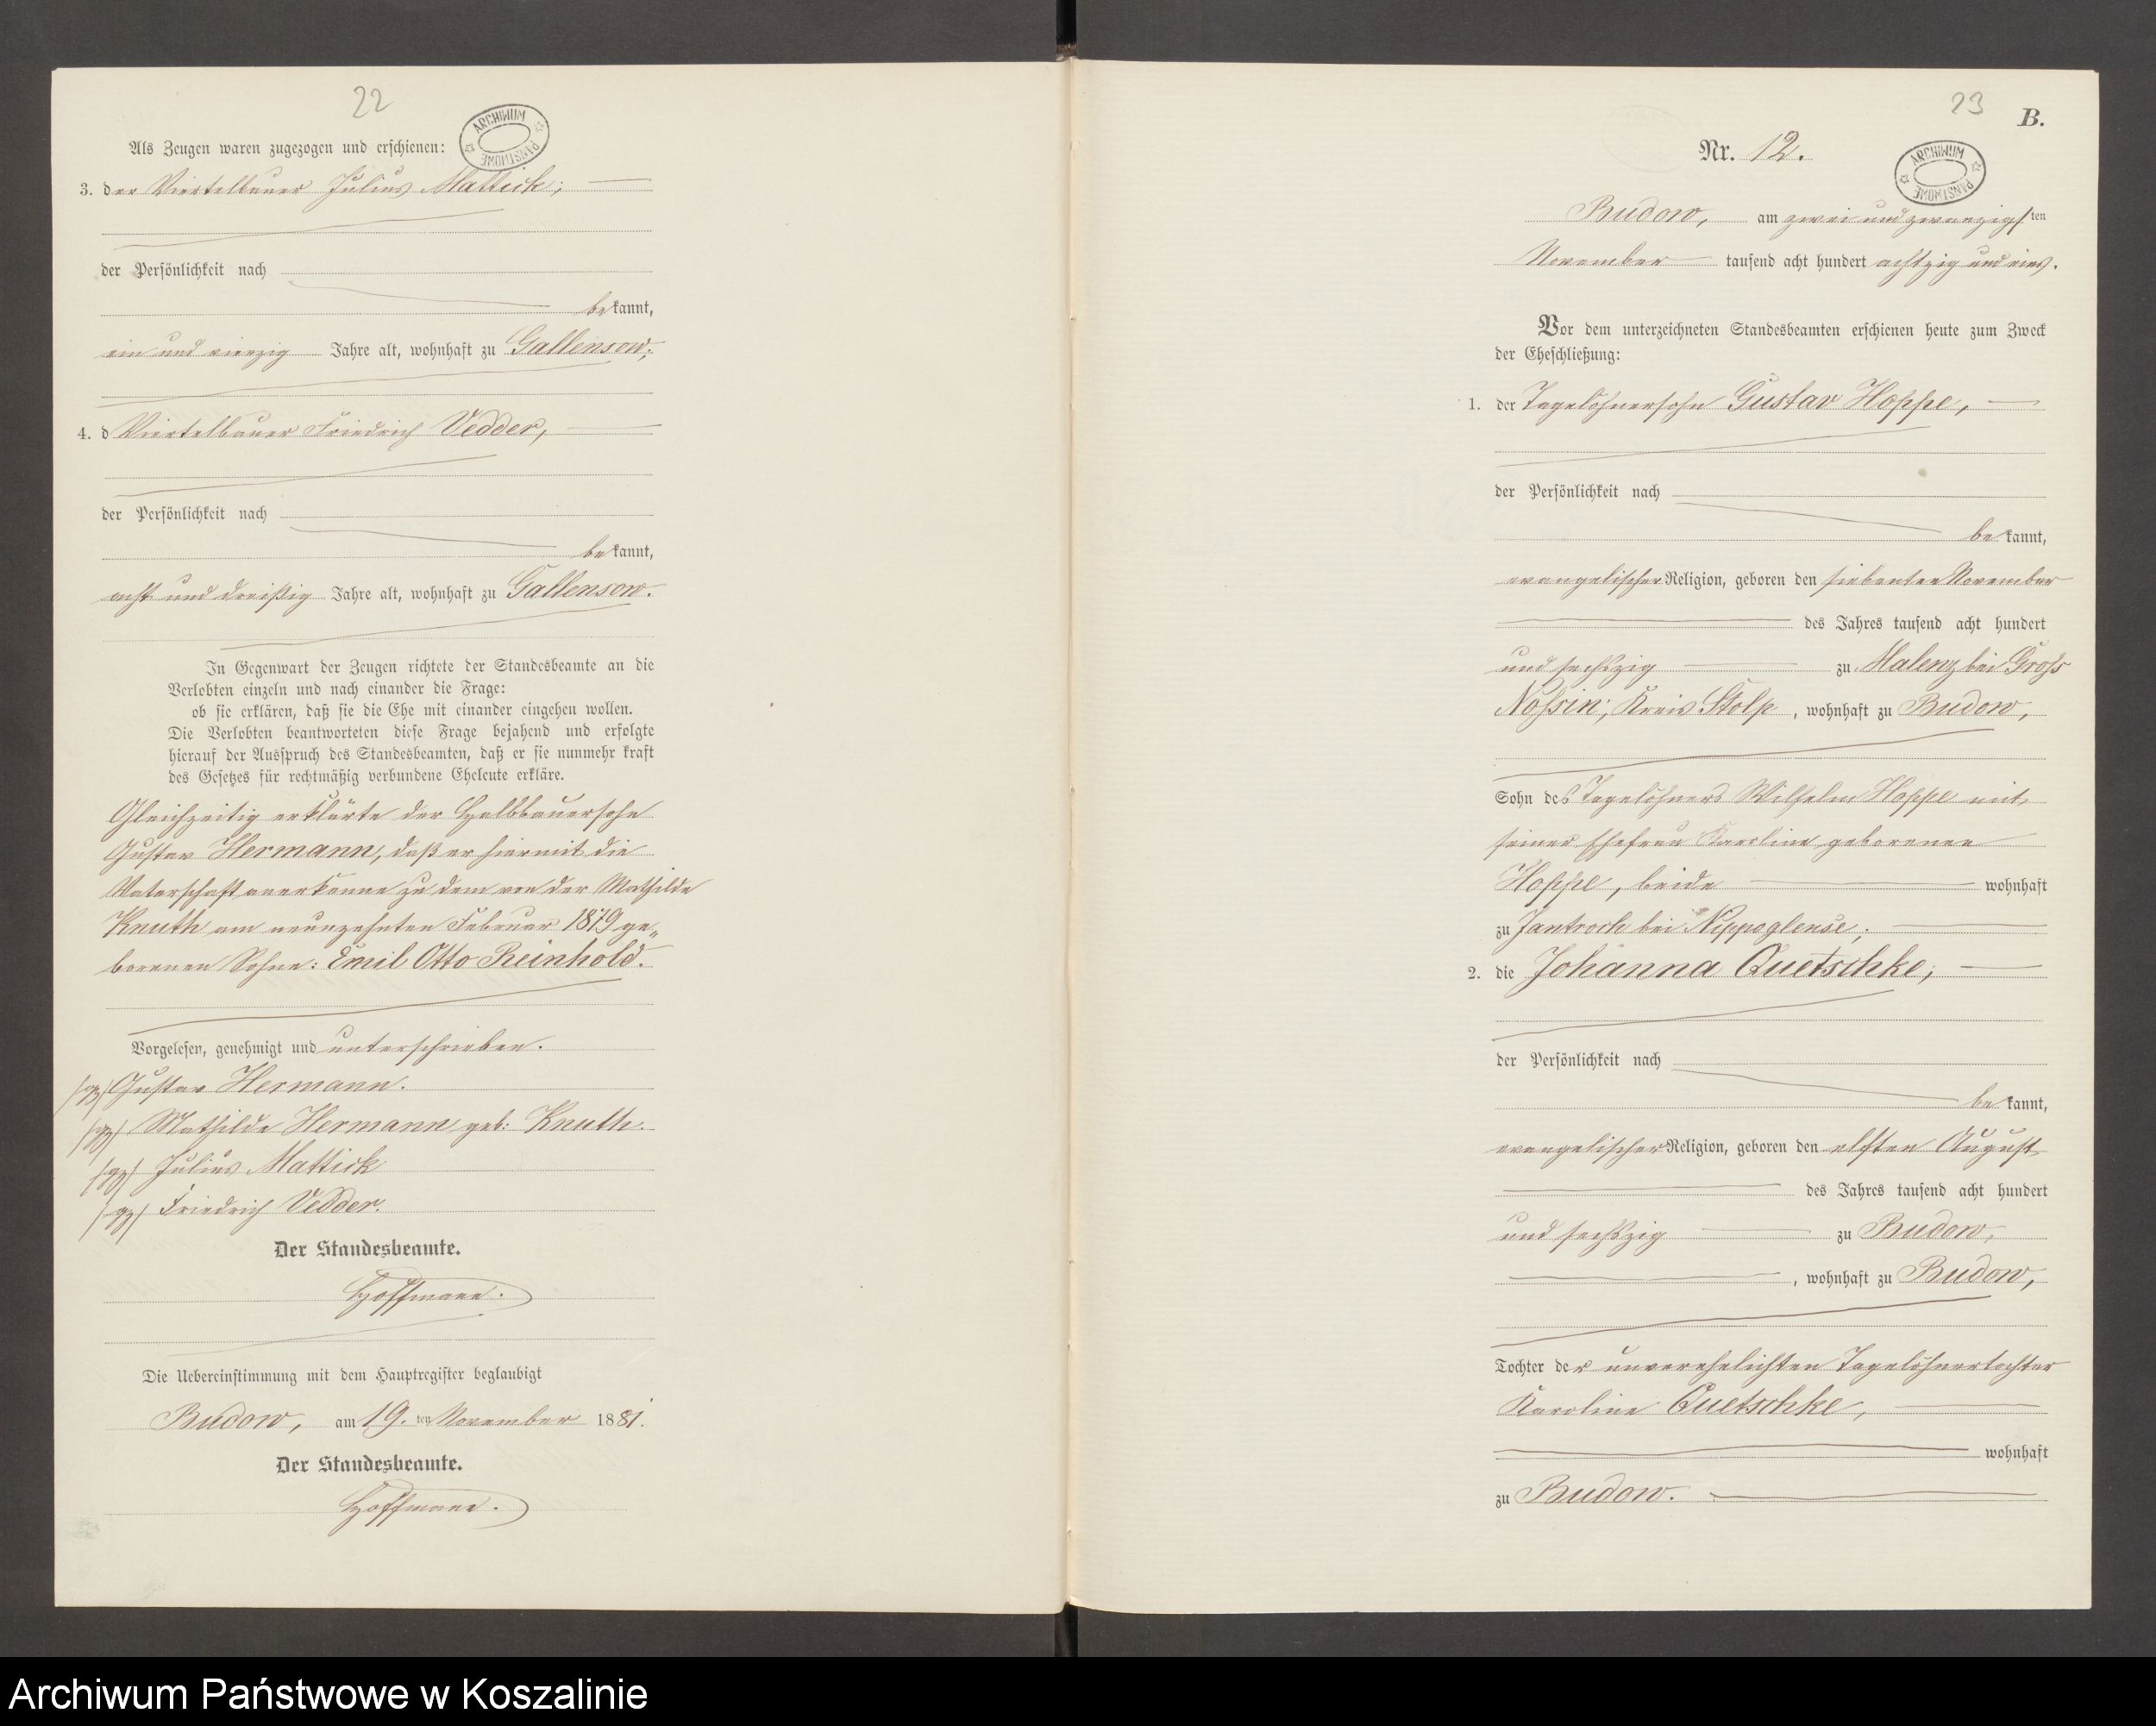 22
ARCHIWUM PAŃSTWOWE
Als Zeugen waren zugezogen und erschienen:
3. der Viertelbauer Julius Mattick;
der Persönlichkeit nach
bekannt,
ein und vierzig Jahre alt, wohnhaft zu Gallensow;
4. d Viertelbauer Friedrich Vedder,
der Persönlichkeit nach
bekannt,
acht und dreißig Jahre alt, wohnhaft zu Gallensow.
In Gegenwart der Zeugen richtete der Standesbeamte an die
Verlobten einzeln und nach einander die Frage:
ob sie erklären, daß sie die Ehe mit einander eingehen wollen.
Die Verlobten beantworteten diese Frage bejahend und erfolgte
hierauf der Ausspruch des Standesbeamten, daß er sie nunmehr kraft
des Gesetzes für rechtmäßig verbundene Eheleute erkläre.
Gleichzeitig erklärte der Halbbauersohn
Gustav Hermann, daß er hiermit die
Vaterschaft anerkenne zu dem von der Mathilde
Knuth am neunzehnten Februar 1879 ge„
borenen Sohne: Emil Otto Reinhold.
Vorgelesen, genehmigt und unterschrieben.
/gz/ Gustav Hermann.
/gz/ Mathilde Hermann geb: Knuth.
/gz/ Julius Mattick
/gz/ Friedrich Vedder.
Der Standesbeamte.
Hoffmann.
Die Uebereinstimmung mit dem Hauptregister beglaubigt
Budow, am 19. ten November 1881.
Der Standesbeamte.
Hoffmann.
23
B.
Nr. 12.
ARCHIWUM PAŃSTWOWE
Budow, am zwei und zwanzigsten
November tausend acht hundert achtzig und eins.
Vor dem unterzeichneten Standesbeamten erschienen heute zum Zweck
der Eheschließung:
1. der Tagelöhnersohn Gustav Hoppe,
der Persönlichkeit nach
bekannt,
evangelischer Religion, geboren den siebenten November
des Jahres tausend acht hundert
und sechszig zu Malenz bei Groß
Noßin; Kreis Stolp, wohnhaft zu Budow,
Sohn des Tagelöhners Wilhelm Hoppe mit
seiner Ehefrau Karoline geborenen
Hoppe, beide wohnhaft
zu Jantroch bei Nippoglense;
2. die Johanna Quetschke,
der Persönlichkeit nach
bekannt,
evangelischer Religion, geboren den elften August
des Jahres tausend acht hundert
und sechszig zu Budow,
, wohnhaft zu Budow,
Tochter der unverehelichten Tagelöhnertochter
Karoline Quetschke,
wohnhaft
zu Budow.
Archiwum Państwowe w Koszalinie